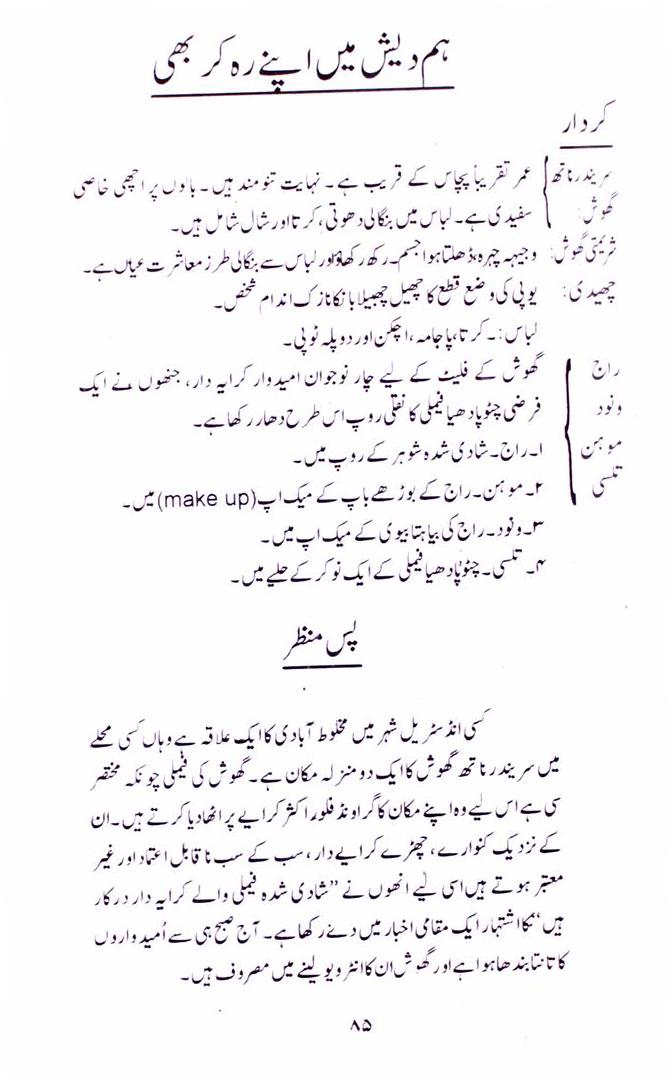 ہم دیش میں اپنے رہ کر بھی
کردار
سریندر ناتھ عمر تقریباً پچاس کے قریب ہے۔ نہایت تنومند ہیں۔ بالوں پر اچھی خاصی
گھوش: سفیدی ہے۔ لباس میں بنگالی دھوتی، کرتا اور شال شامل ہیں۔
شریمتی گھوش: وجیہہ چہرہ، ڈھلتا ہوا جسم۔ رکھ رکھاؤ اور لباس سے بنگالی طرز معاشرت عیاں ہے۔
چھیدی: یوپی کی وضع قطع کا چھیل چھبیلا بانکا نازک اندام شخص۔
لباس:۔ کرتا، پاجامہ، اچکن اور دوپلہ ٹوپی۔
راج گھوش کے فلیٹ کے لیے چار نوجوان امیدوار کرایہ دار، جنھوں نے ایک
ونود فرضی چٹوپادھیا فیملی کا نقلی روپ اس طرح دھار رکھا ہے۔
موہن ۱۔ راج۔ شادی شدہ شوہر کے روپ میں۔
تلسی ۲۔ موہن۔ راج کے بوڑھے باپ کے میک اپ (make up) میں۔
۳۔ ونود۔ راج کی بیاہتا بیوی کے میک اپ میں۔
۴۔ تلسی۔ چٹوپادھیا فیملی کے ایک نوکر کے حلیے میں۔
پس منظر
کسی انڈسٹریل شہر میں مخلوط آبادی کا ایک علاقہ ہے وہاں کسی محلے
میں سریندر ناتھ گھوش کا ایک دو منزلہ مکان ہے۔ گھوش کی فیملی چونکہ مختصر
سی ہے اس لیے وہ اپنے مکان کا گراونڈ فلور اکثر کرایے پر اٹھا دیا کرتے ہیں۔ ان
کے نزدیک کنوارے، چھڑے کرایے دار، سب کے سب ناقابل اعتماد اور غیر
معتبر ہوتے ہیں اسی لیے انھوں نے ”شادی شدہ فیملی والے کرایہ دار درکار
ہیں“ کا اشتہار ایک مقامی اخبار میں دے رکھا ہے۔ آج صبح ہی سے اُمیدواروں
کا تانتا بندھا ہوا ہے اور گھوش ان کا انٹرویو لینے میں مصروف ہیں۔
۸۵